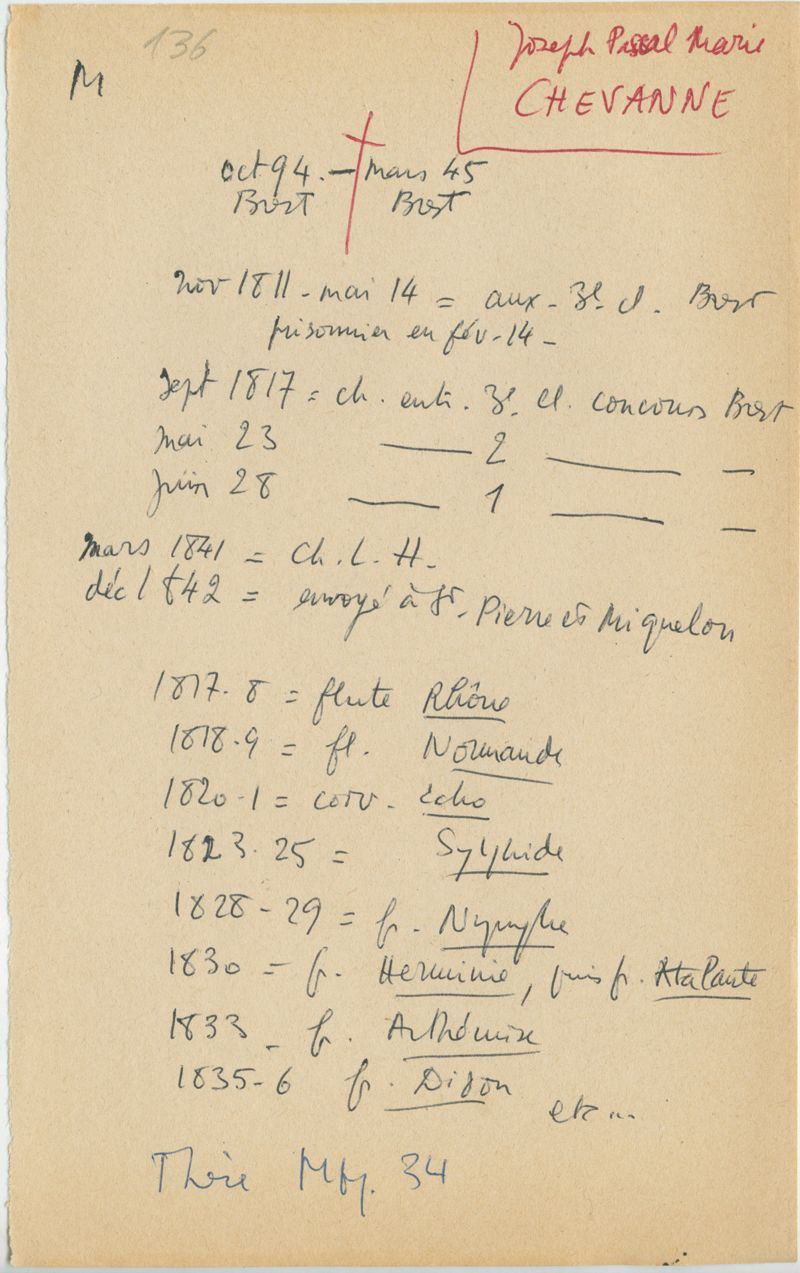 136
M
Joseph Pascal Marie
CHEVANNE
oct 94. — mars 45
Brest Brest
nov 1811 - mai 14 = aux. 3e cl. Brest
prisonnier en fév. 14 -
Sept 1817 = ch. ent. 3e cl. concours Brest
mai 23 — 2 — —
juin 28 — 1 — —
mars 1841 = Ch. L. H.
déc 1842 = envoyé à St. Pierre et Miquelon
1817-8 = flute Rhône
1818-9 = fl. Normande
1820-1 = corv. Echo
1823-25 = Sylphide
1828-29 = fr. Nymphe
1830 = fr. Herminie, puis fr. Atalante
1833 - fr. Arthémise
1835-6 fr. Didon
etc...
Thèse 34